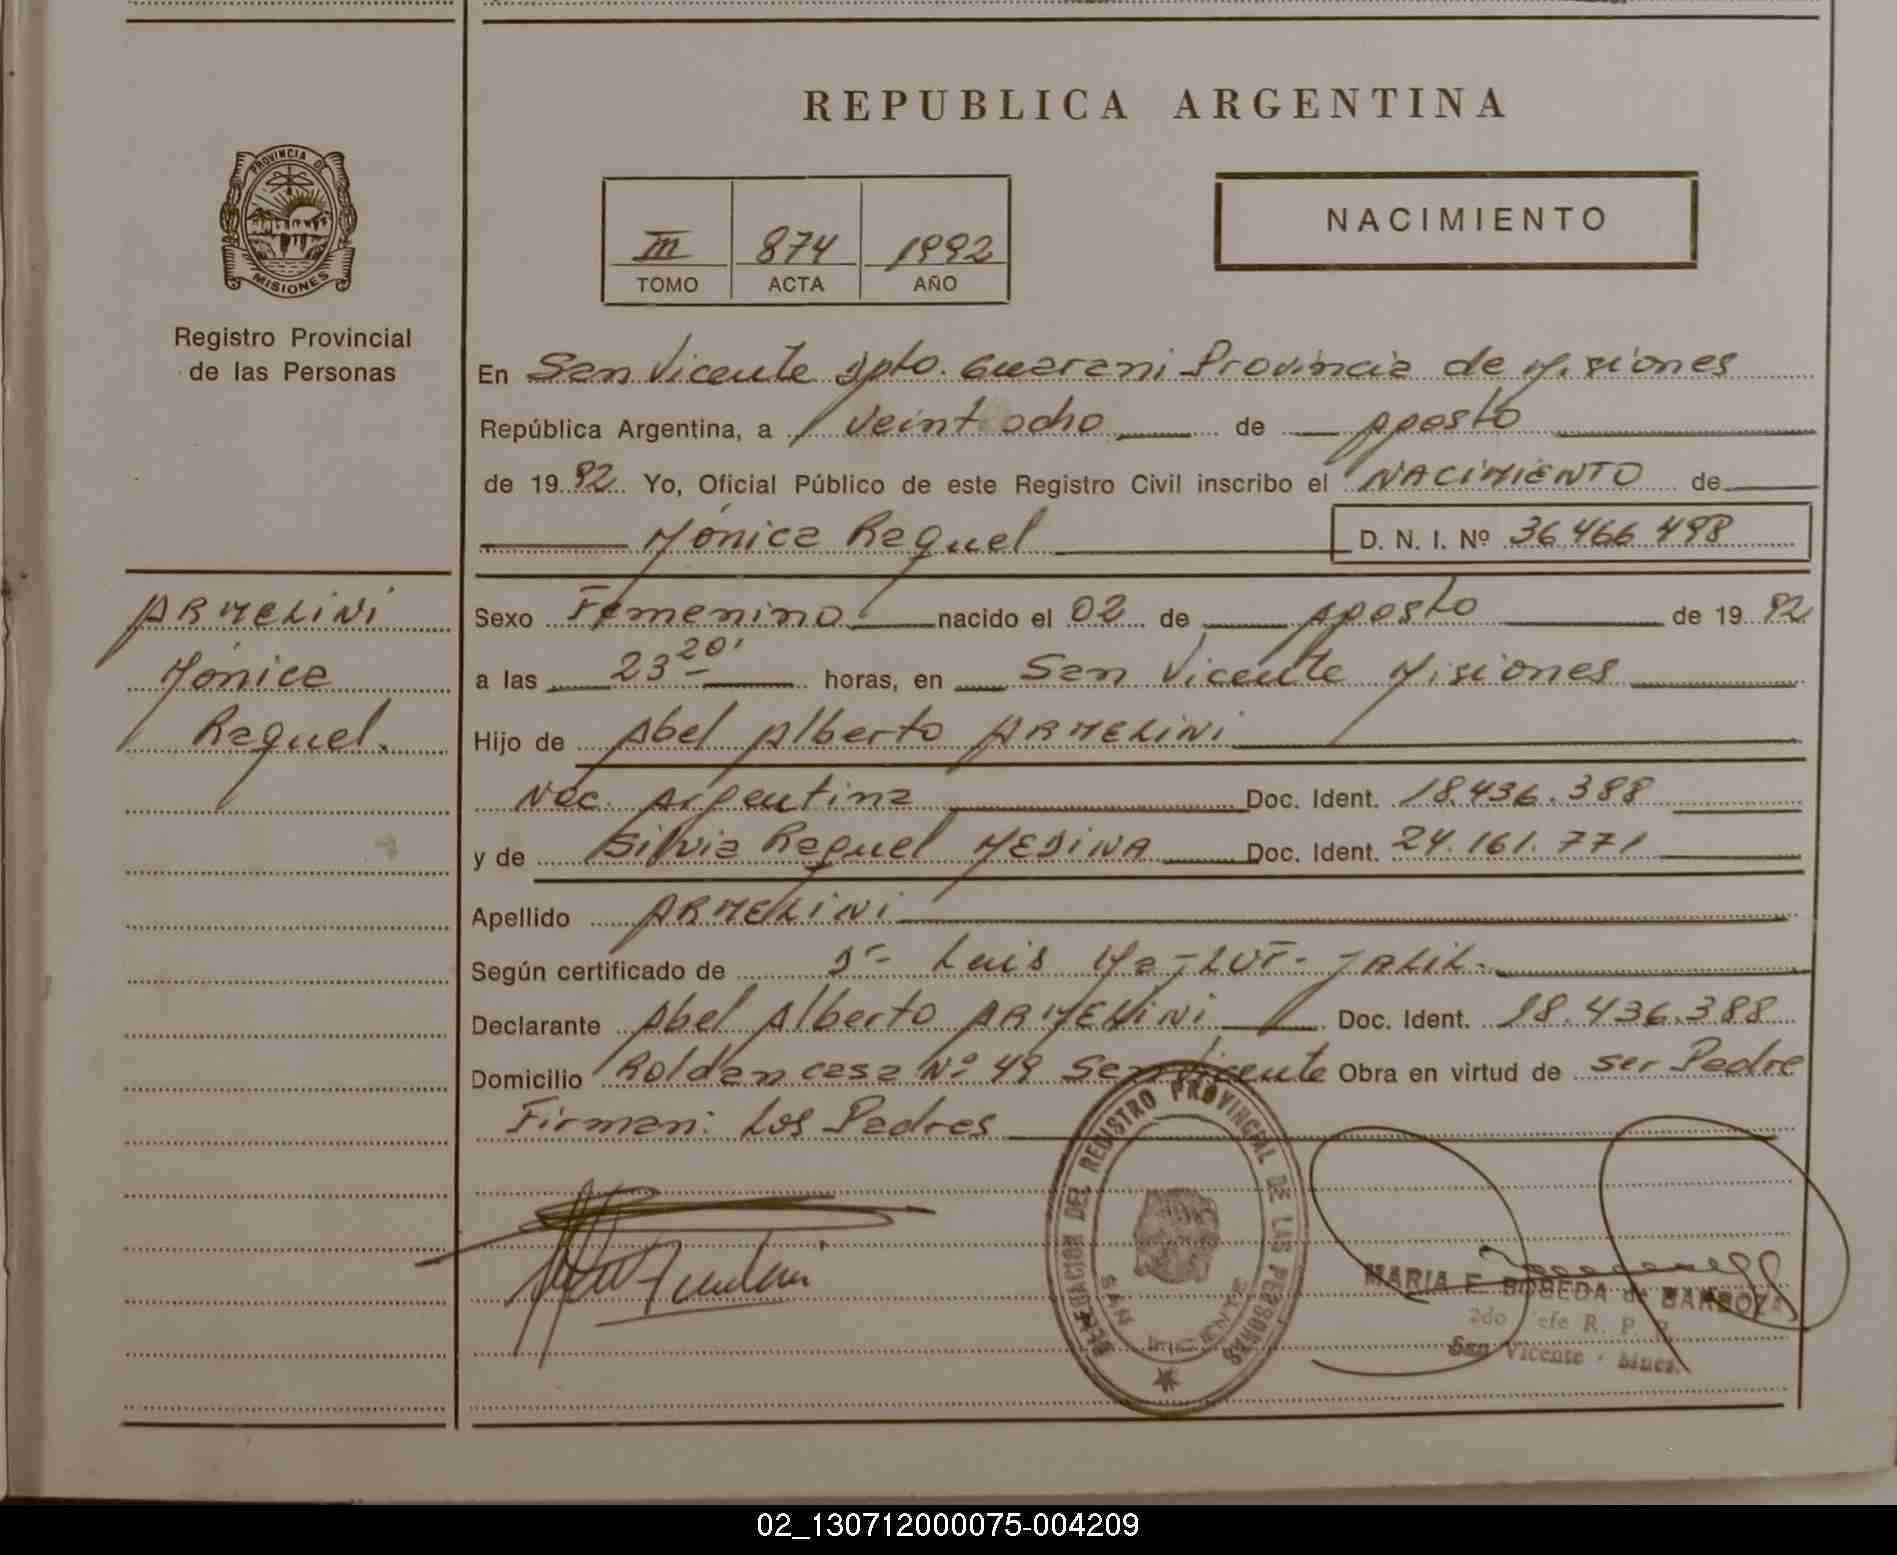 REPUBLICA ARGENTINA
PROVINCIA DE
MISIONES
Registro Provincial
de las Personas
III 874 1992
TOMO ACTA AÑO
NACIMIENTO
En San Vicente Dpto. Guarani Provincia de Misiones
República Argentina, a veintiocho de Agosto
de 1992 Yo, Oficial Público de este Registro Civil inscribo el NACIMIENTO de
Mónica Raquel D. N. I. Nº 36 466 498
ARMELINI
Mónica
Raquel.
Sexo Femenino nacido el 02 de Agosto de 1992
a las 23 20' horas, en San Vicente Misiones
Hijo de Abel Alberto ARMELINI
Nac. Argentina Doc. Ident. 18.436.388
y de Silvia Raquel MEDINA Doc. Ident. 24.161.771
Apellido ARMELINI
Según certificado de Dr Luis JALIL.
Declarante Abel Alberto ARMELINI Doc. Ident. 18.436.388
Domicilio Roldan casa Nº 49 San Vicente Obra en virtud de ser Padre
Firman: Los Padres
DELEGACION DEL REGISTRO PROVINCIAL DE LAS PERSONAS
SAN VICENTE
MARIA E. BOBEDA de BARBOZA
2do Jefe R. P. P.
San Vicente - Mnes.
02_130712000075-004209